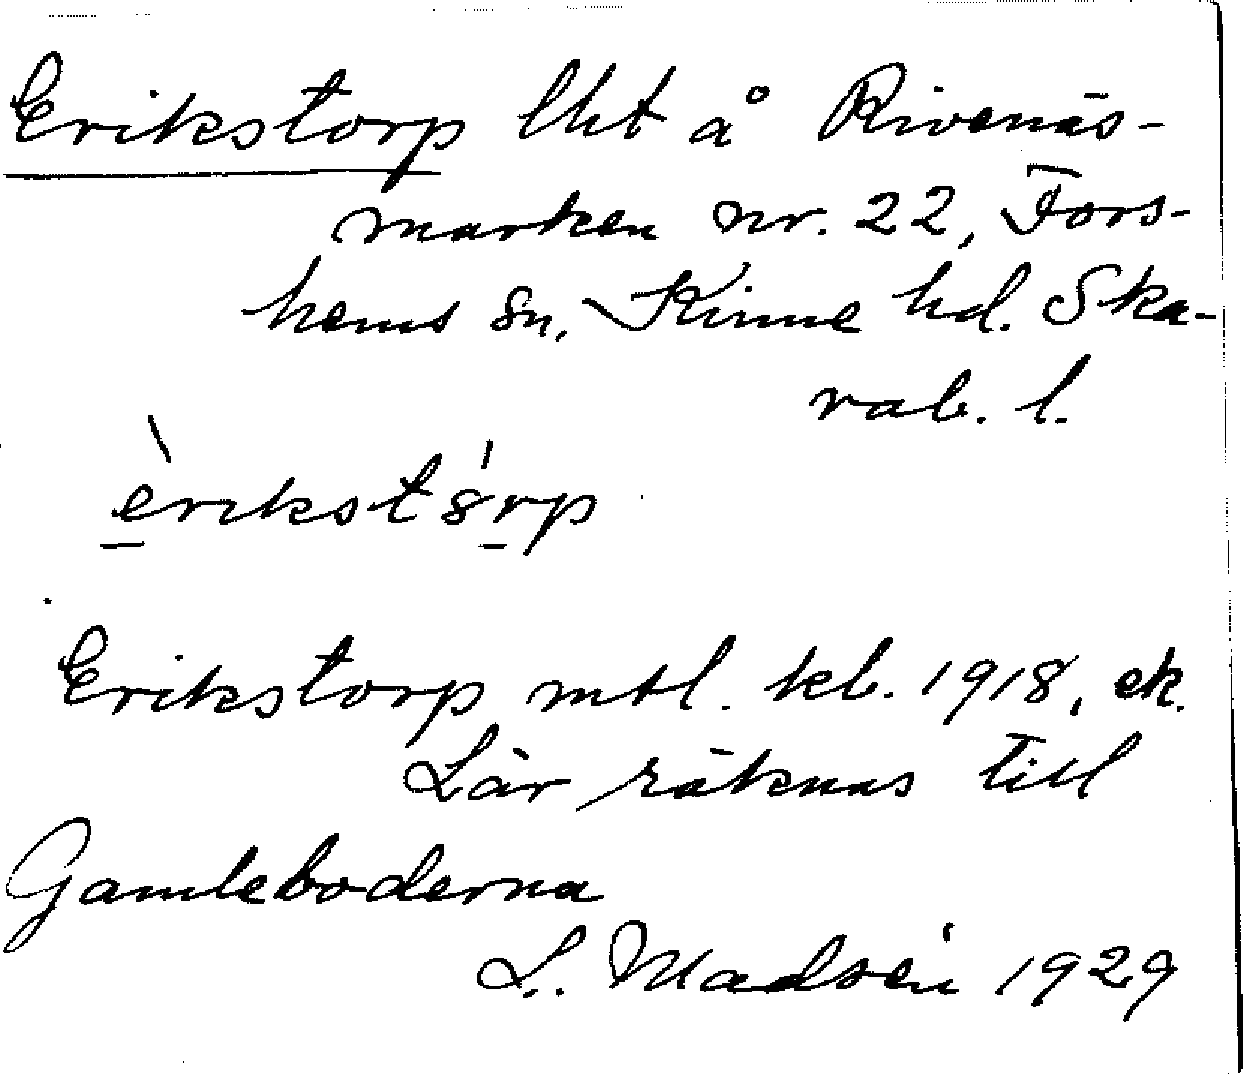 Erikstorp lht å Rivenäs-
marken nr. 22, Fors-
hems sn, Kinne hd. Ska-
rab. l.
èrikstó̱rp
Erikstorp mtl. kb. 1918, ek.
Lär räknas till
Gamleboderna
L. Madsén 1929